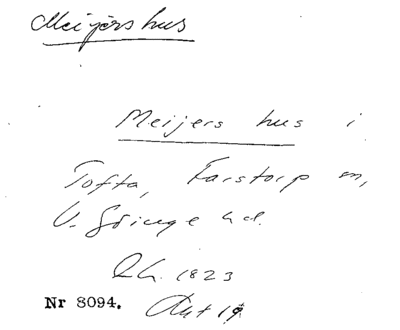 Meijers hus
Meijers hus i
Tofta, Farstorp sn,
V. Göinge hd.
1823
Nr 8094.